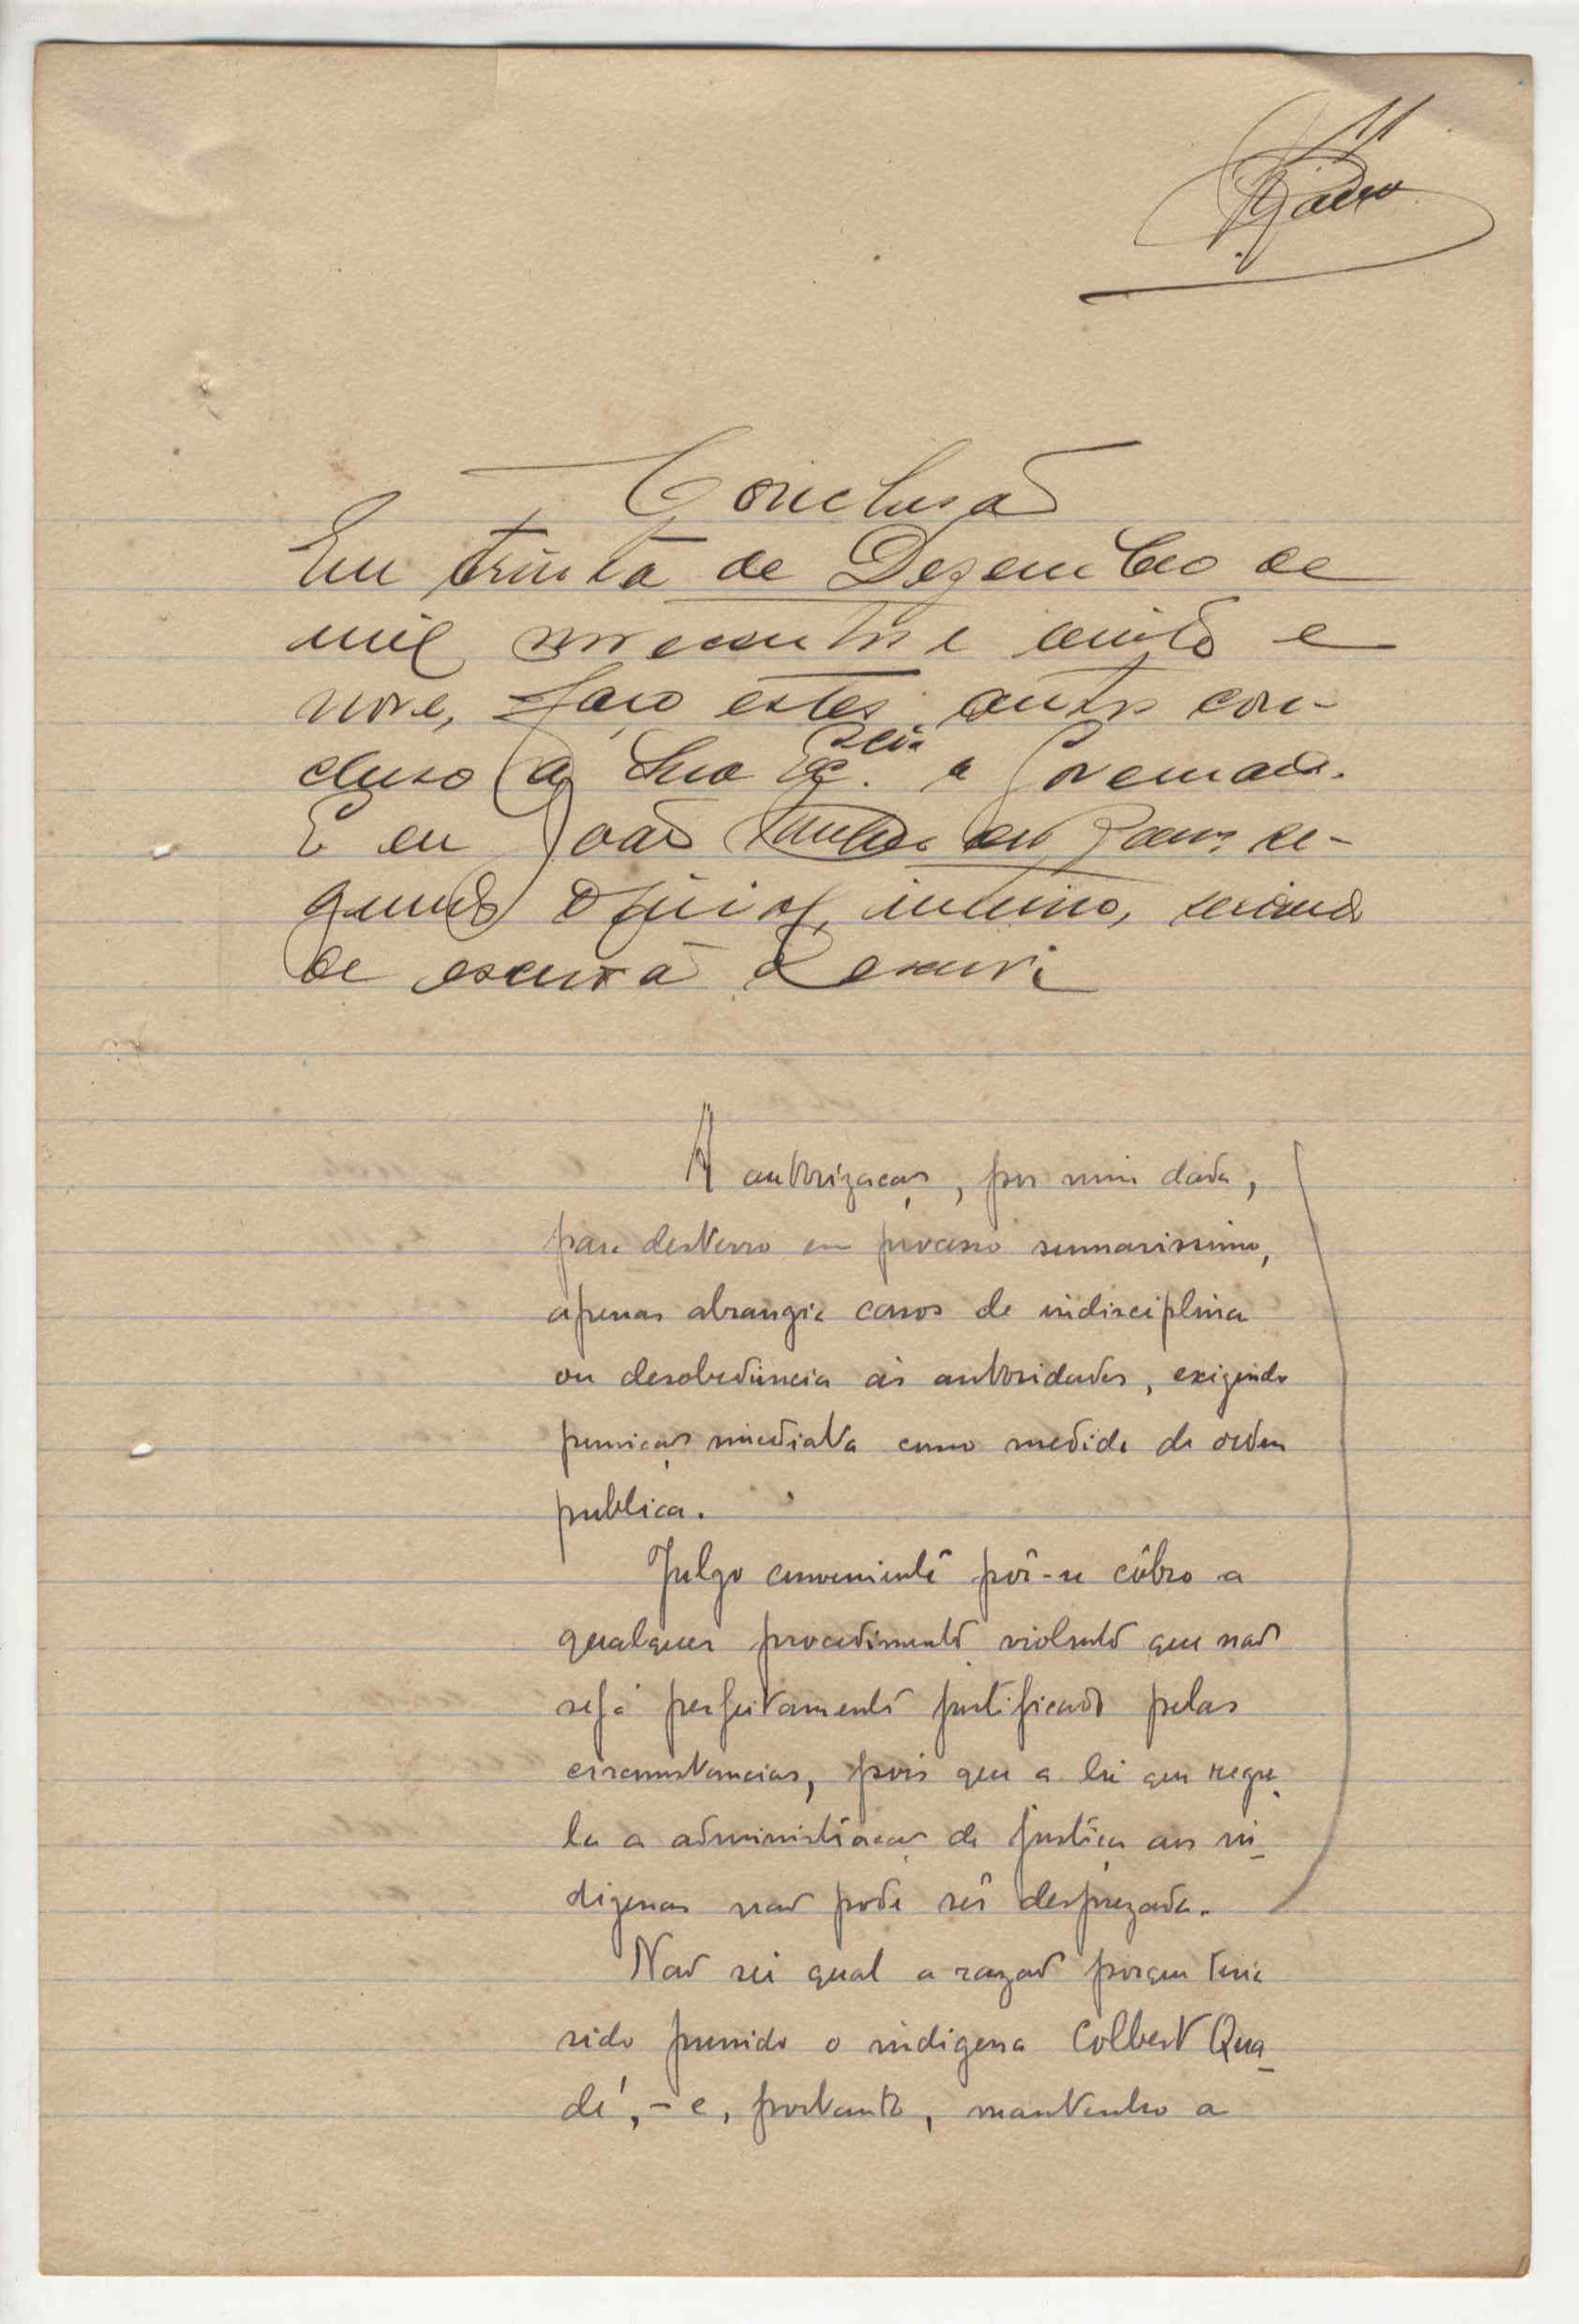 11
Conclusão
Em trinta de Dezembro de
mil novecentos e vinte e
nove, faço estes autos con-
cluso a Sua Ex.cia o Governador.
E eu João de Ramos se-
gundo oficial, interino, servindo
de escrivão o escrevi
A autorização, por mim dada,
para desterro em processo summarissimo,
apenas abrangia casos de indisciplina
ou desobediencia ás autoridades, exigindo
punição imediata como medida de ordem
publica.
Julgo conveniente pôr-se côbro a
qualquer procedimento violento que não
seja perfeitamente justificado pelas
circumstancias, pois que a lei que regu-
la a administração da justiça aos in-
digenas não pode ser desprezada.
Não sei qual a razão porque teria
sido punido o indigena Colbert Qua-
dé, - e, portanto, mantenho a